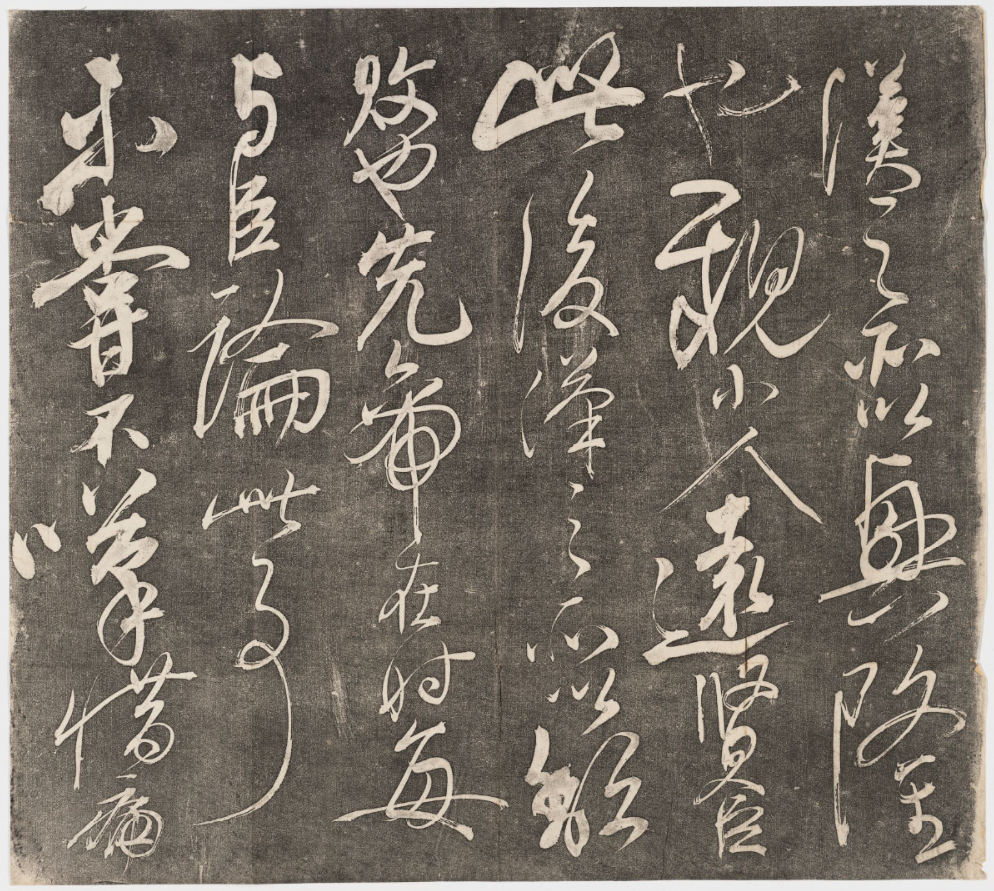 漢之所以興隆
也親小人遠賢臣
此後漢之所以頹
敗也先帝在時每
與臣論此事
未嘗不嘆惜痛